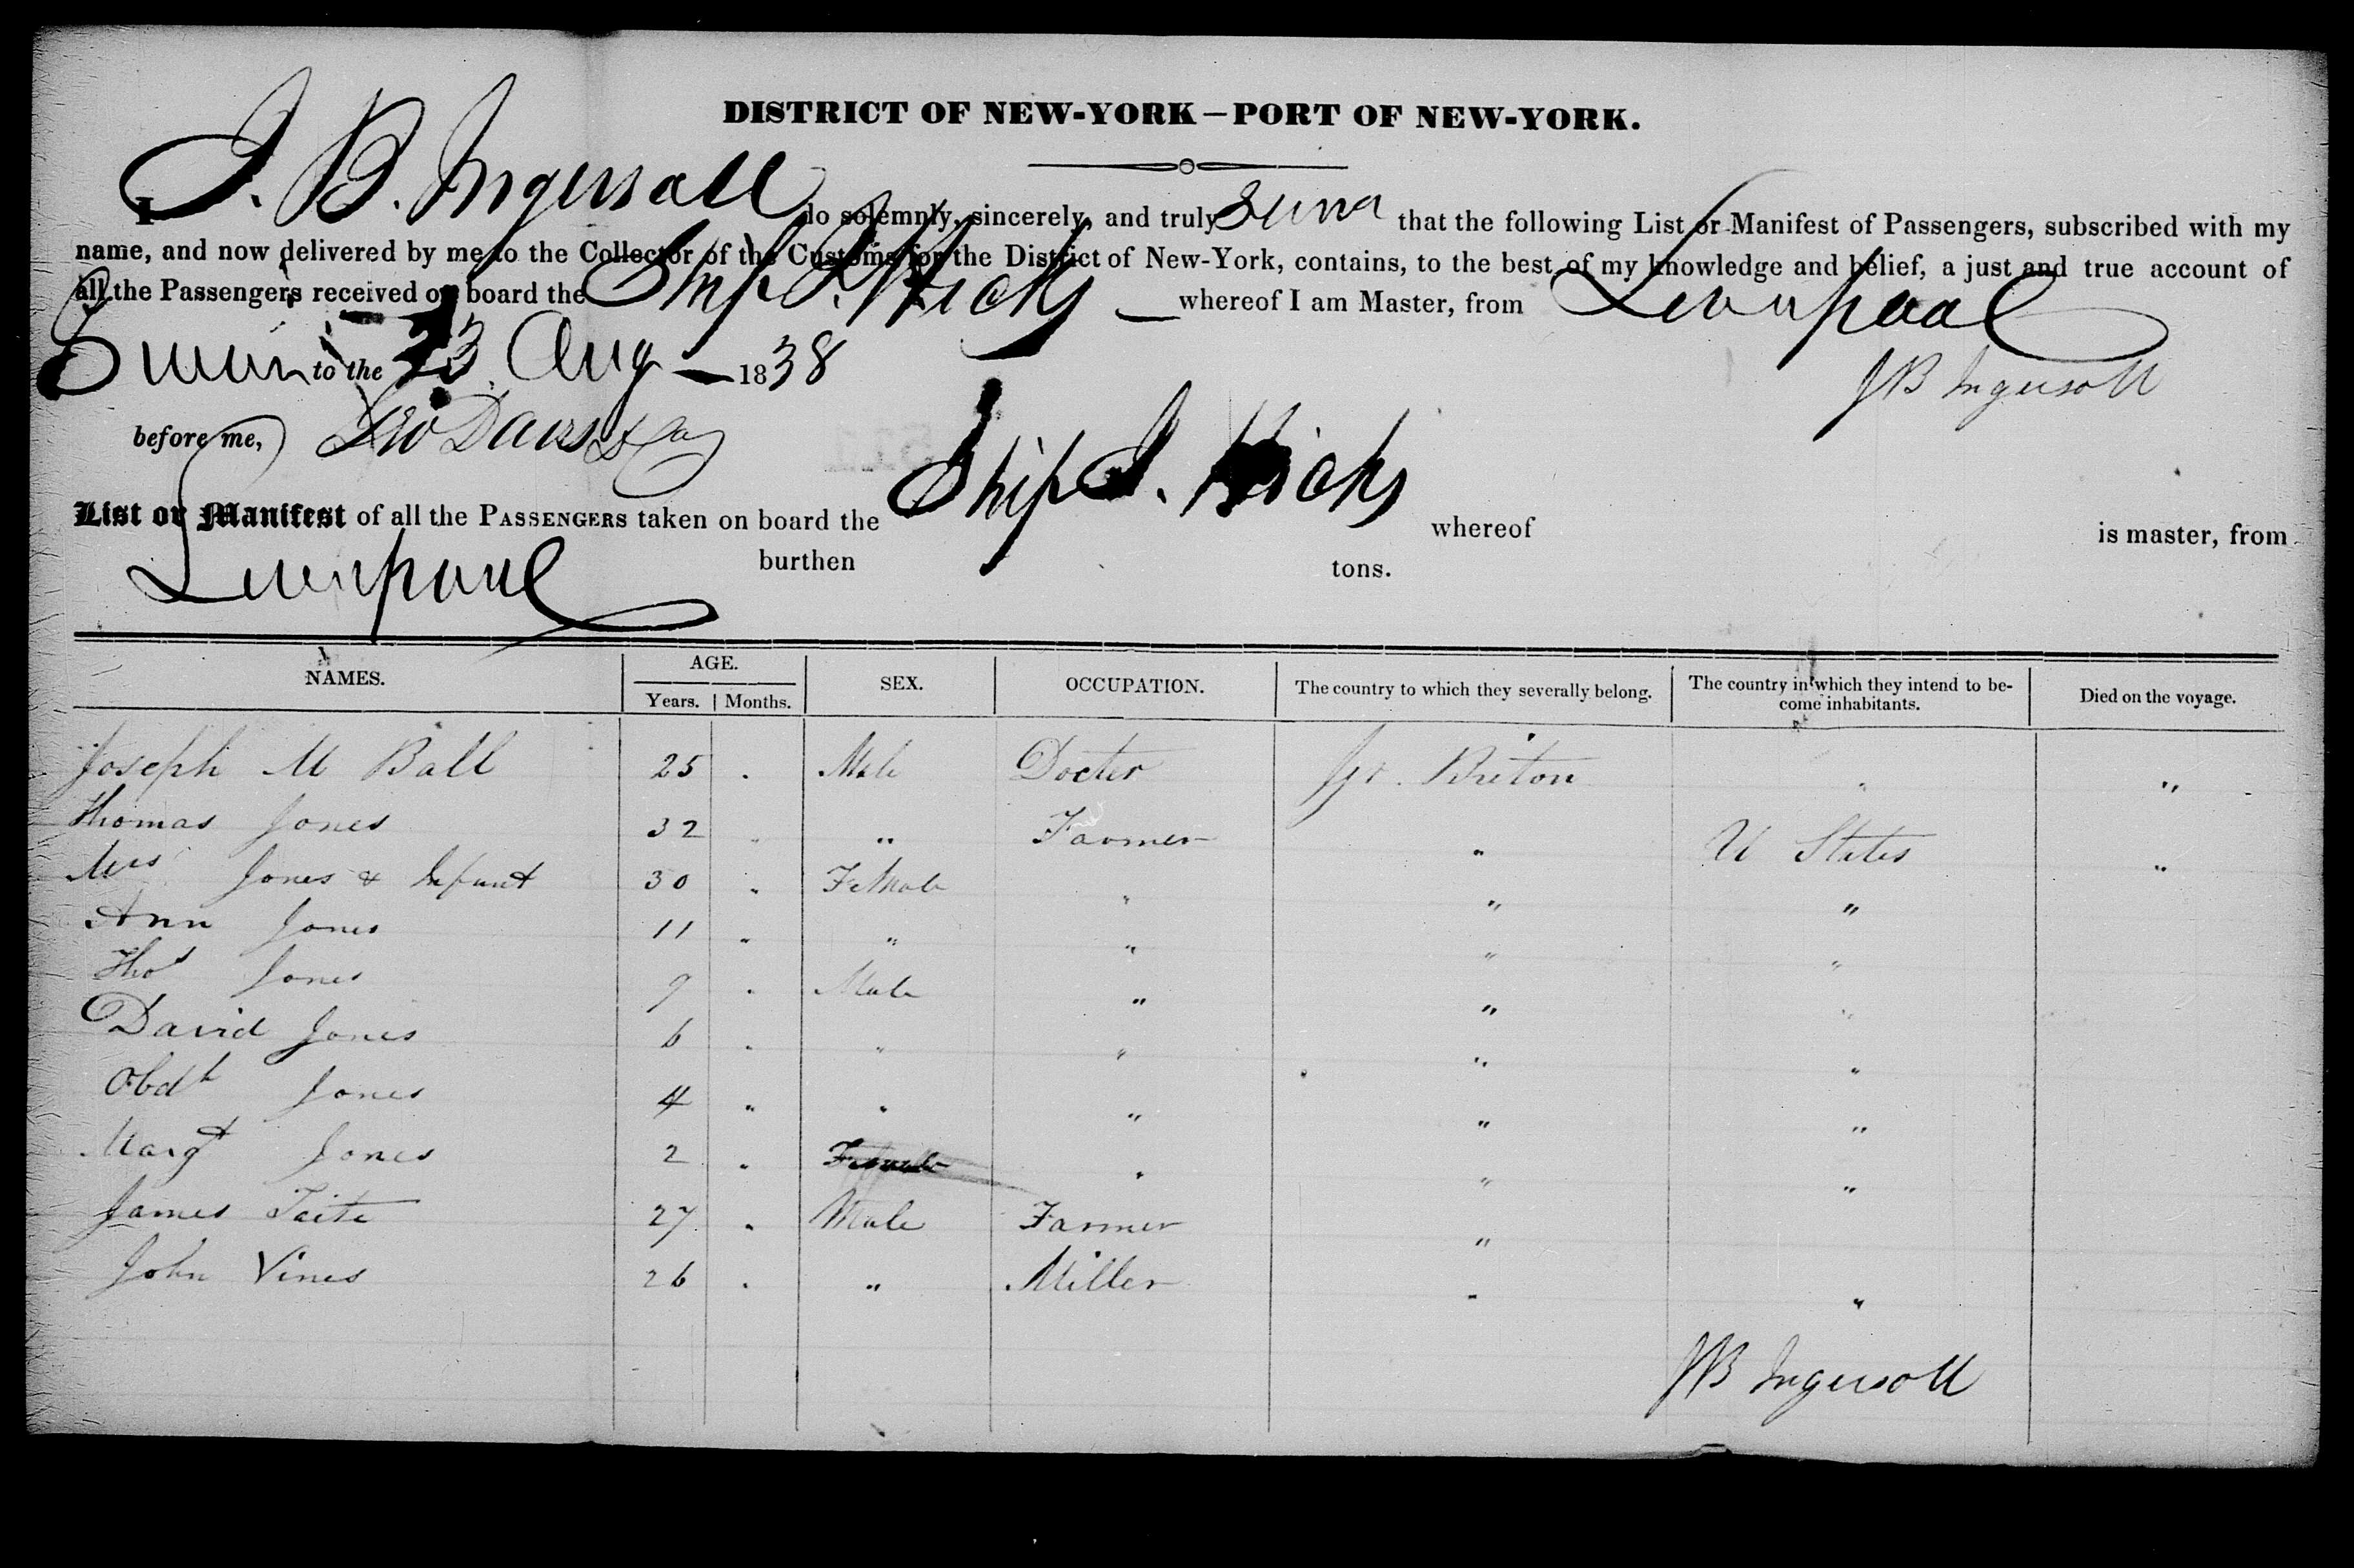 DISTRICT OF NEW-YORK—PORT OF NEW-YORK.
I J. B. Ingersoll do solemnly, sincerely, and truly that the following List or Manifest of Passengers, subscribed with my
name, and now delivered by me to the Collector of the Customs for the District of New-York, contains, to the best of my knowledge and belief, a just and true account of
all the Passengers received on board the Ship S. Hicks whereof I am Master, from Liverpool
Sworn to the 23 Aug 1838
JB Ingersoll
before me, Geo Davis
List or Manifest of all the PASSENGERS taken on board the Ship S. Hicks whereof is master, from
Liverpool burthen tons.
NAMES. AGE. Years. Months. SEX. OCCUPATION. The country to which they severally belong. The country in which they intend to be-come inhabitants. Died on the voyage.
Joseph M Ball 25 . Male Docter Gr. Briton " "
Thomas Jones 32 " " Farmer " U States "
Mrs Jones & Infant 30 " Female " " "
Ann Jones 11 " " " " "
Thos Jones 9 " Male " " "
David Jones 6 " " " " "
Obdh Jones 4 " " " " "
Margt Jones 2 " Female " " "
James Taite 27 " Male Farmer "
John Vines 26 " " Miller " "
JB Ingersoll